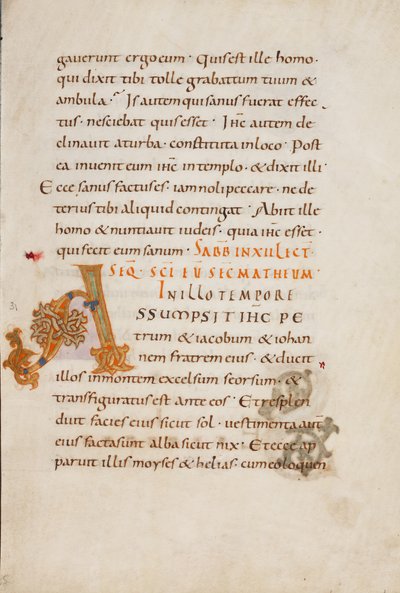 gauerunt ergo eum · Quis est ille homo ·
qui dixit tibi tolle grabattum tuum &
ambula · Is autem qui sanus fuerat effec
tus · nesciebat quis esset · Ihc autem de
clinauit a turba · constituta in loco · Post
ea inuenit eum ihc in templo · & dixit illi
Ecce sanus factus es · iam noli peccare · ne de
terius tibi aliquid contingat · Abiit ille
homo & nuntiauit iudeis · quia ihc esset ·
qui fecit eum sanum · SABB IN XII LECT ·
SEQ · SCI EU SEC MATHEUM ·
IN ILLO TEMPORE
ASSUMPSIT IHC PE
trum & iacobum & iohan
nem fratrem eius · & ducit
illos in montem excelsum seorsum · &
transfiguratus est ante eos · Et resplen
duit facies eius sicut sol · uestimenta aut
eius facta sunt alba sicut nix · Et ecce ap
paruit illis moyses & helias · cum eo loquen
31